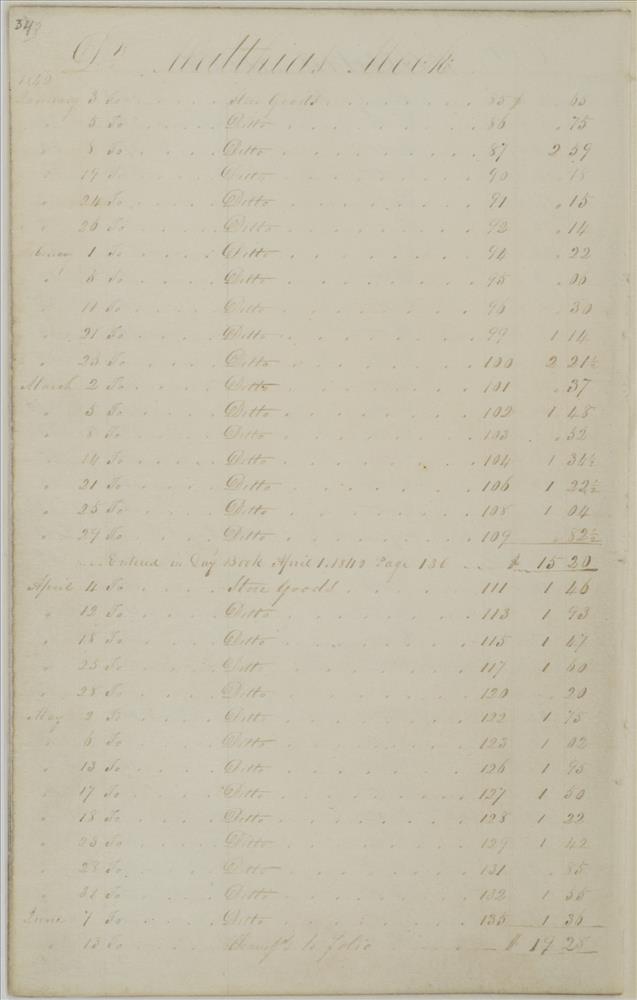 348
Dr Matthias Mook
1840
January 3 To . . . . . Store Goods . . . . . . . . 85 $ . 65
" 5 To . . . . . Ditto . . . . . . . . . 86 . 75
" 8 To . . . . . Ditto . . . . . . . . . 87 2 59
" 19 To . . . . . Ditto . . . . . . . . . 90 . 18
" 24 To . . . . . Ditto . . . . . . . . . 91 . 15
" 26 To . . . . . Ditto . . . . . . . . . 92 . 14
1 To . . . . . Ditto . . . . . . . . . 94 . 22
" To . . . . . Ditto . . . . . . . . . 95 .
" 11 To . . . . . Ditto . . . . . . . . . 96 . 30
" 21 To . . . . . Ditto . . . . . . . . . 99 1 14
" 23 To . . . . . Ditto . . . . . . . . . 100 2 21½
March 2 To . . . . . Ditto . . . . . . . . . 101 . 37
" 5 To . . . . . Ditto . . . . . . . . . 102 1 48
" 8 To . . . . . Ditto . . . . . . . . . 103 . 52
" 14 To . . . . . Ditto . . . . . . . . . 104 1 34½
" 21 To . . . . . Ditto . . . . . . . . . 106 1 22½
" 25 To . . . . . Ditto . . . . . . . . . 108 1 04
" 29 To . . . . . Ditto . . . . . . . . . 109 . 82½
Entered in Day Book April 1. 1840 Page 136 $ 15 20
April 4 To . . . . . Store Goods . . . . . . . 111 1 46
" 12 To . . . . . Ditto . . . . . . . . . 113 1 93
" 18 To . . . . . Ditto . . . . . . . . . 115 1 47
" 25 To . . . . . Ditto . . . . . . . . . 117 1 60
" 28 To . . . . . Ditto . . . . . . . . . 120 . 20
May 2 To . . . . . Ditto . . . . . . . . . 122 1 75
" 6 To . . . . . Ditto . . . . . . . . . 123 1 02
" 13 To . . . . . Ditto . . . . . . . . . 126 1 95
" 17 To . . . . . Ditto . . . . . . . . . 127 1 50
" 18 To . . . . . Ditto . . . . . . . . . 128 1 22
" 23 To . . . . . Ditto . . . . . . . . . 129 1 42
" 28 To . . . . . Ditto . . . . . . . . . 131 . 85
" 31 To . . . . . Ditto . . . . . . . . . 132 1 55
June 7 To . . . . . Ditto . . . . . . . . . 135 1 36
" 13 To . . . . . to folio $ 19 28